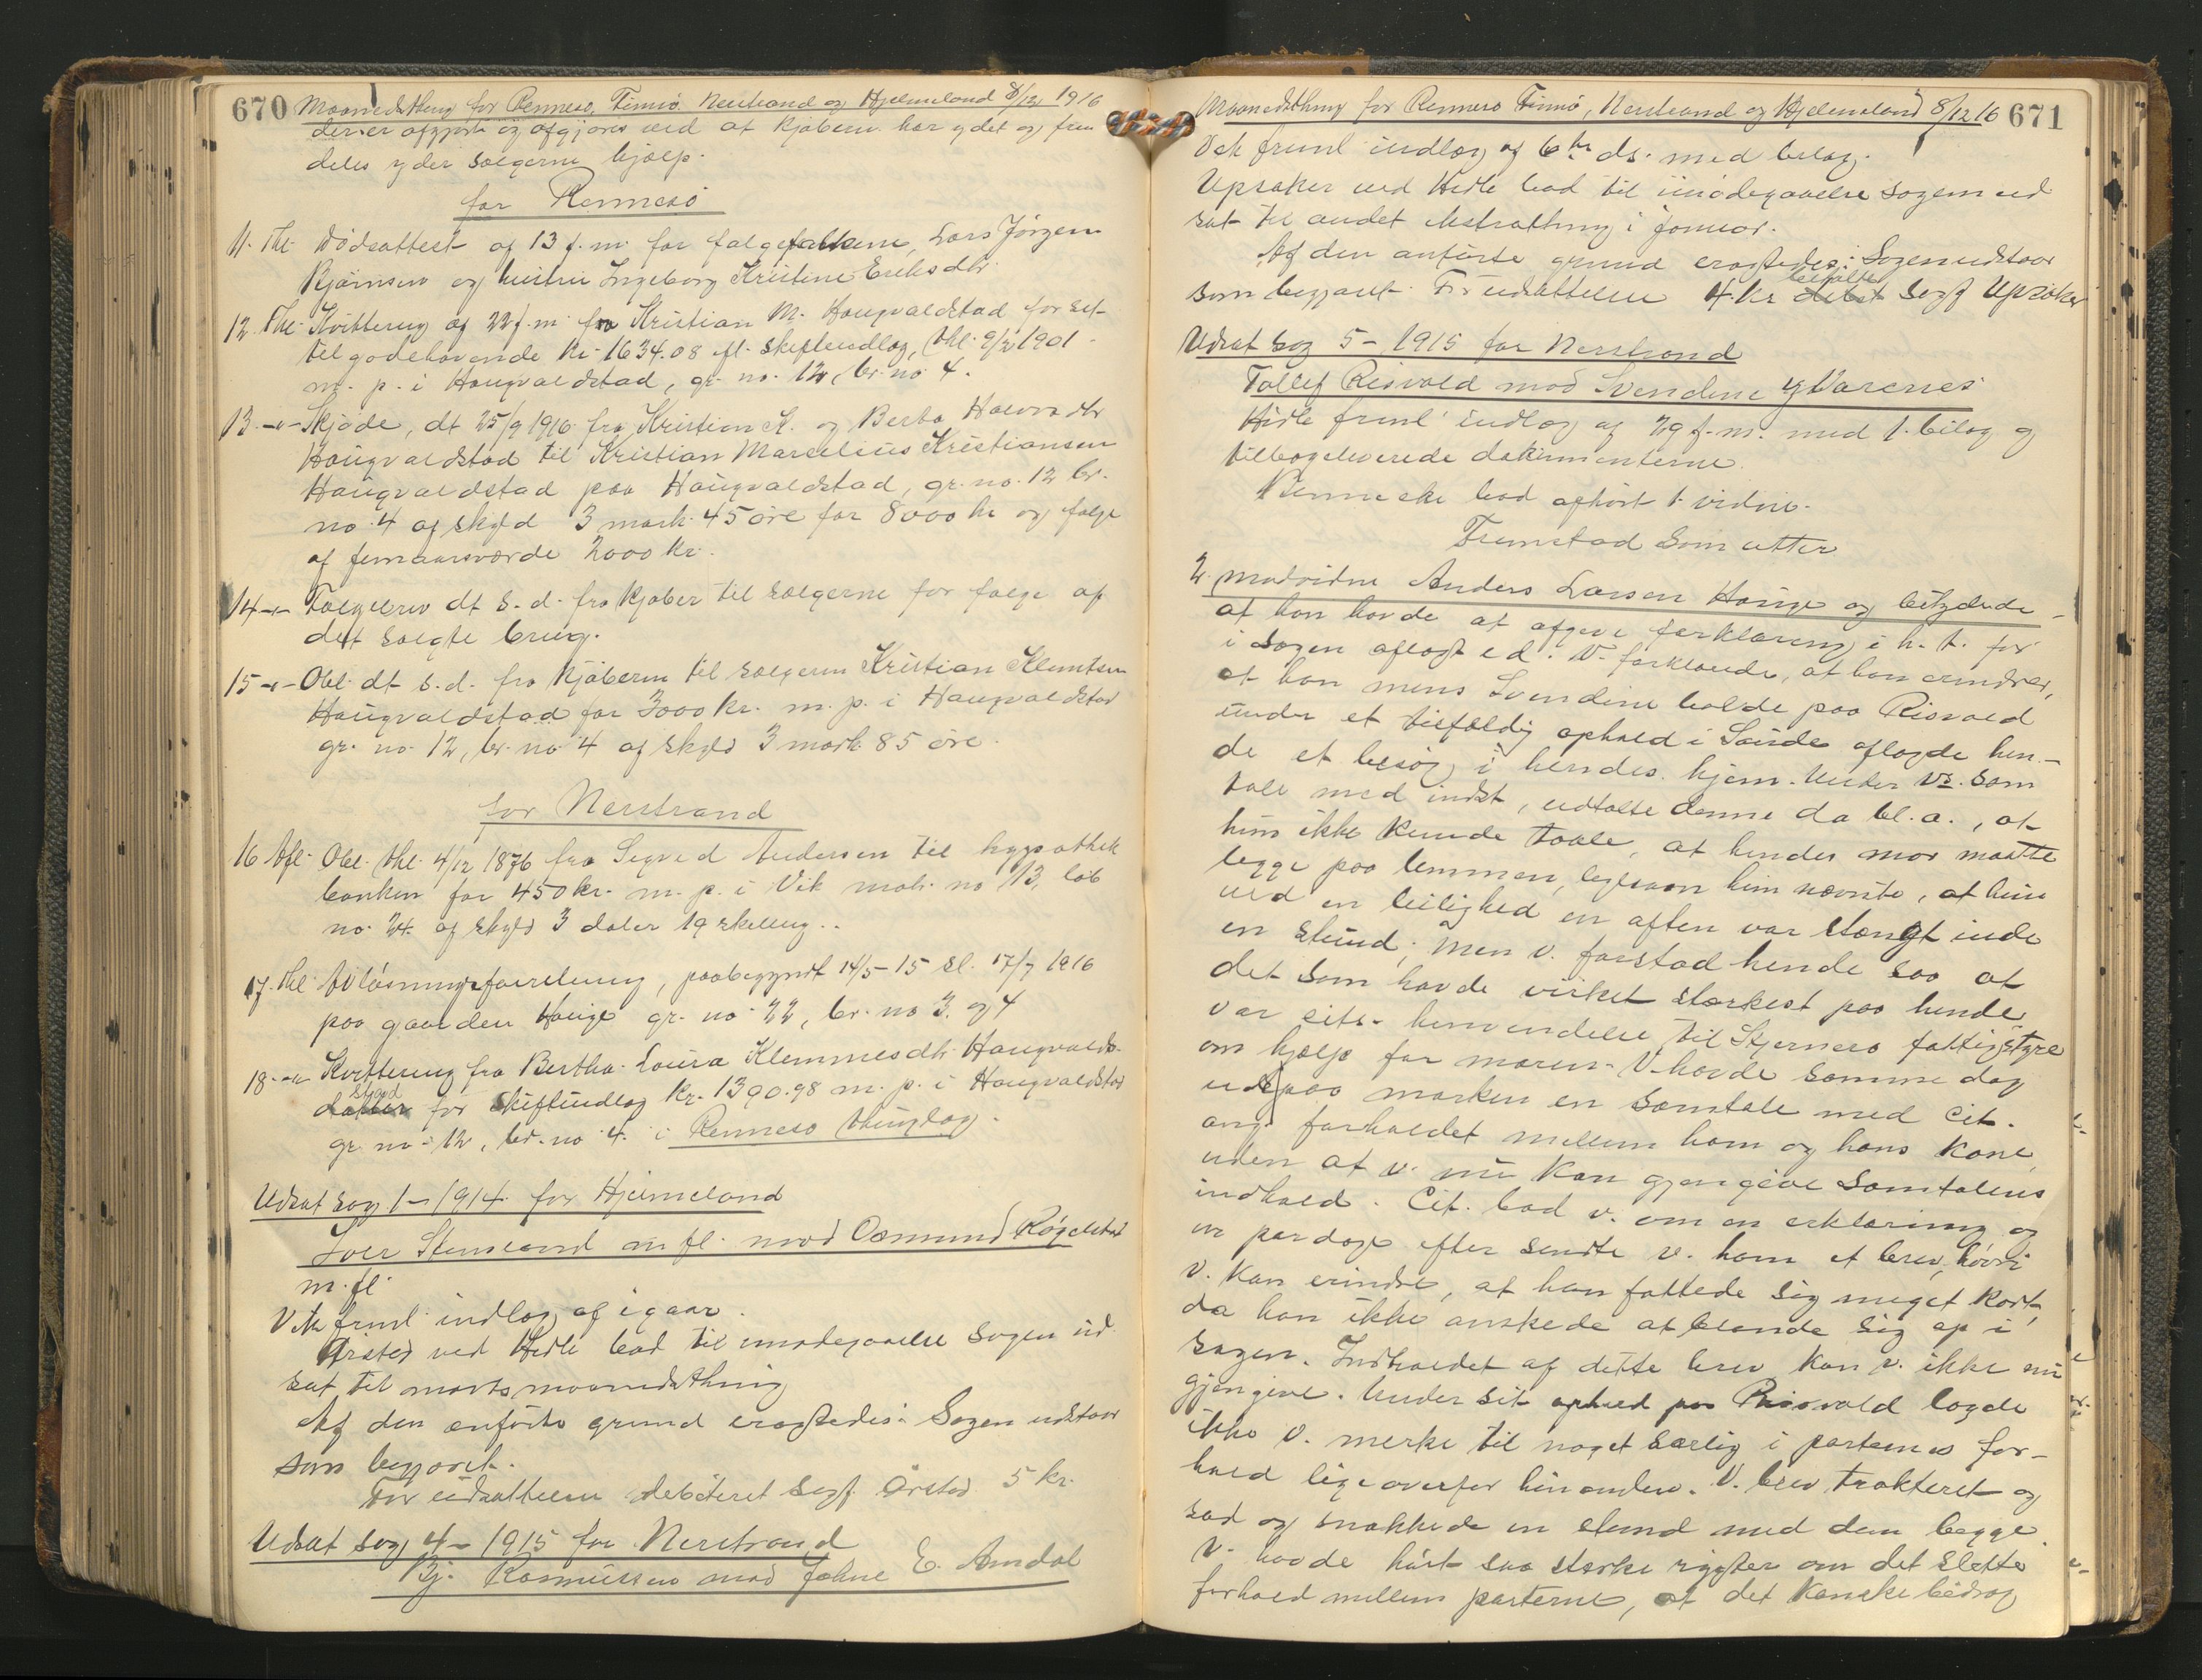 670 Maanedsthing for Rennesø, Finnø, Nerstrand og Hjelmeland 8/12 1916
der er afgjort og afgjøres ved at kjøberen har ydet og frem
deles yder sælgerne hjælp.
for Rennesø
11. Thl. Dødsattest af 13 f. m. for folgefolkene, Lars Jørgen
Bjørnsen og hustru Ingeborg Kristine Eriksdtr.
12. Thl. Kvittering af 22 f. m. fra Kristian M. Haugvaldstad for sit
tilgodehavende kr. 1634.08 ifl. skifteudlæg, thl. 9/2 1901
m. p. i Haugvaldstad, gr. no. 12, br. no. 4.
13. -"- Skjøde, dt 25/9 1916 fra Kristian K. og Berta Halvorsdtr
Haugvaldstad til Kristian Marselius Kristiansen
Haugvaldstad paa Haugvaldstad, gr. no. 12 br.
no. 4 af skyld 3 mark 45 øre for 8000 kr og folge
af femaarsværde 2000 kr.
14 -"- Folgebrev dt s. d. fra kjøber til sælgerne for folge af
det solgte brug.
15 -"- Obl. dt s. d. fra kjøberen til sælgeren Kristian Klemtsen
Haugvaldstad for 3000 kr. m. p. i Haugvaldstad
gr. no. 12, br. no. 4 af skyld 3 mark 85 øre.
for Nerstrand
16 Afl. Obl. thl. 4/12 1876 fra Sigved Andersen til hypothek
banken for 450 kr. m. p. i Vik matr. no 13, løb
no. 24 af skyld 3 daler 19 skilling..
17. Thl. Afløsningsforretning, paabegyndt 14/5-15 sl. 17/7 1916
paa gaarden Hauge gr. no. 22, br. no 3. og 4
18. -"- Kvittering fra Bertha Loura Klemmesdtr Haugvalds-
stad
datter for skifteudlæg kr. 1390.98 m. p. i Haugvaldstad
gr. no. 12, br. no 4. i Rennesø thinglag.
Udsat sag 1 - 1914 for Hjelmeland
Iver Stensland m. fl. mod Osmund Røgelstad
m. fl
Vth fruml. indlæg af igaar.
Ørsted ved Hidle bad til imødegaaelse sagen ud
sat til marts maanedsthing
Af den anførte grund eragtedes: Sagen udstaar
som begjæret.
For udsættelsen debiteret sagf. Ørsted 5 kr.
Udsat sag 4 - 1915 for Nerstrand
Bj. Rasmussen mod Johne E. Amdal
Maanedsthing for Rennesø Finnø, Nerstrand og Hjelmeland 8/12 16 671
Vth fruml indlæg af 6te ds. med bilag.
Upsaker ved Hidle bad til imødegaaelse sagen ud
sat til andet ekstrathing i januar.
Af den anførte grund eragtedes: Sagen udstaar
som begjært. For udsættelsen 4 kr debet sagf Upsaker
Udsat sag 5 - 1915 for Nerstrand
Tollef Risvold mod Svendine Ytvarenes
Hidle fruml indlæg af 29 f. m. med 1 bilag og
tilbageleverede dokumenterne.
Benneche bad afhørt 1 vidne.
Fremstod som atter
2. modvidne Anders Larsen Hauge og betydede
at han havde at afgive forklaring i h. t. før
i sagen aflagt ed. V. forklarede, at han erindrer,
at han mens Svendine boede paa Risvold
under et tilfældig ophold i Sande aflagde hen-
de et besøg i hendes hjem. Under Vs. sam
tale med indst, udtalte denne da bl. a., at
hun ikke kunde taale, at hendes mor maatte
ligge paa lemmen, ligesaan hun nævnte, at hun
ved en leilighed en aften var stængt inde
en stund; men v. forstod hende saa at
det som havde virket stærkest paa hende
var cits. henvendelse til Skjernerø fattigstyre
om hjælp for moren. V. havde samme dag
ude paa marken en samtale med cit.
ang. forholdet mellem ham og hans kone,
uden at v. nu kan gjengive samtalens
indhold. Cit. bad v. om en erklæring og
en par dage efter sendte v. ham et brev, hvori
v. kan erindre, at han fattede sig meget kort,
da han ikke ønskede at blande sig op i
sagen. Indholdet af dette brev kan v. ikke nu
gjengive. Under sit ophold paa Risvold lagde
ikke v. merke til noget særlig i parternes for-
hold ligeoverfor hinanden. V. blev trakteret og
sad og snakkede en stund med dem begge.
V. havde hørt saa sterke rygter om det slette
forhold mellem parterne, at det kanske bidrog